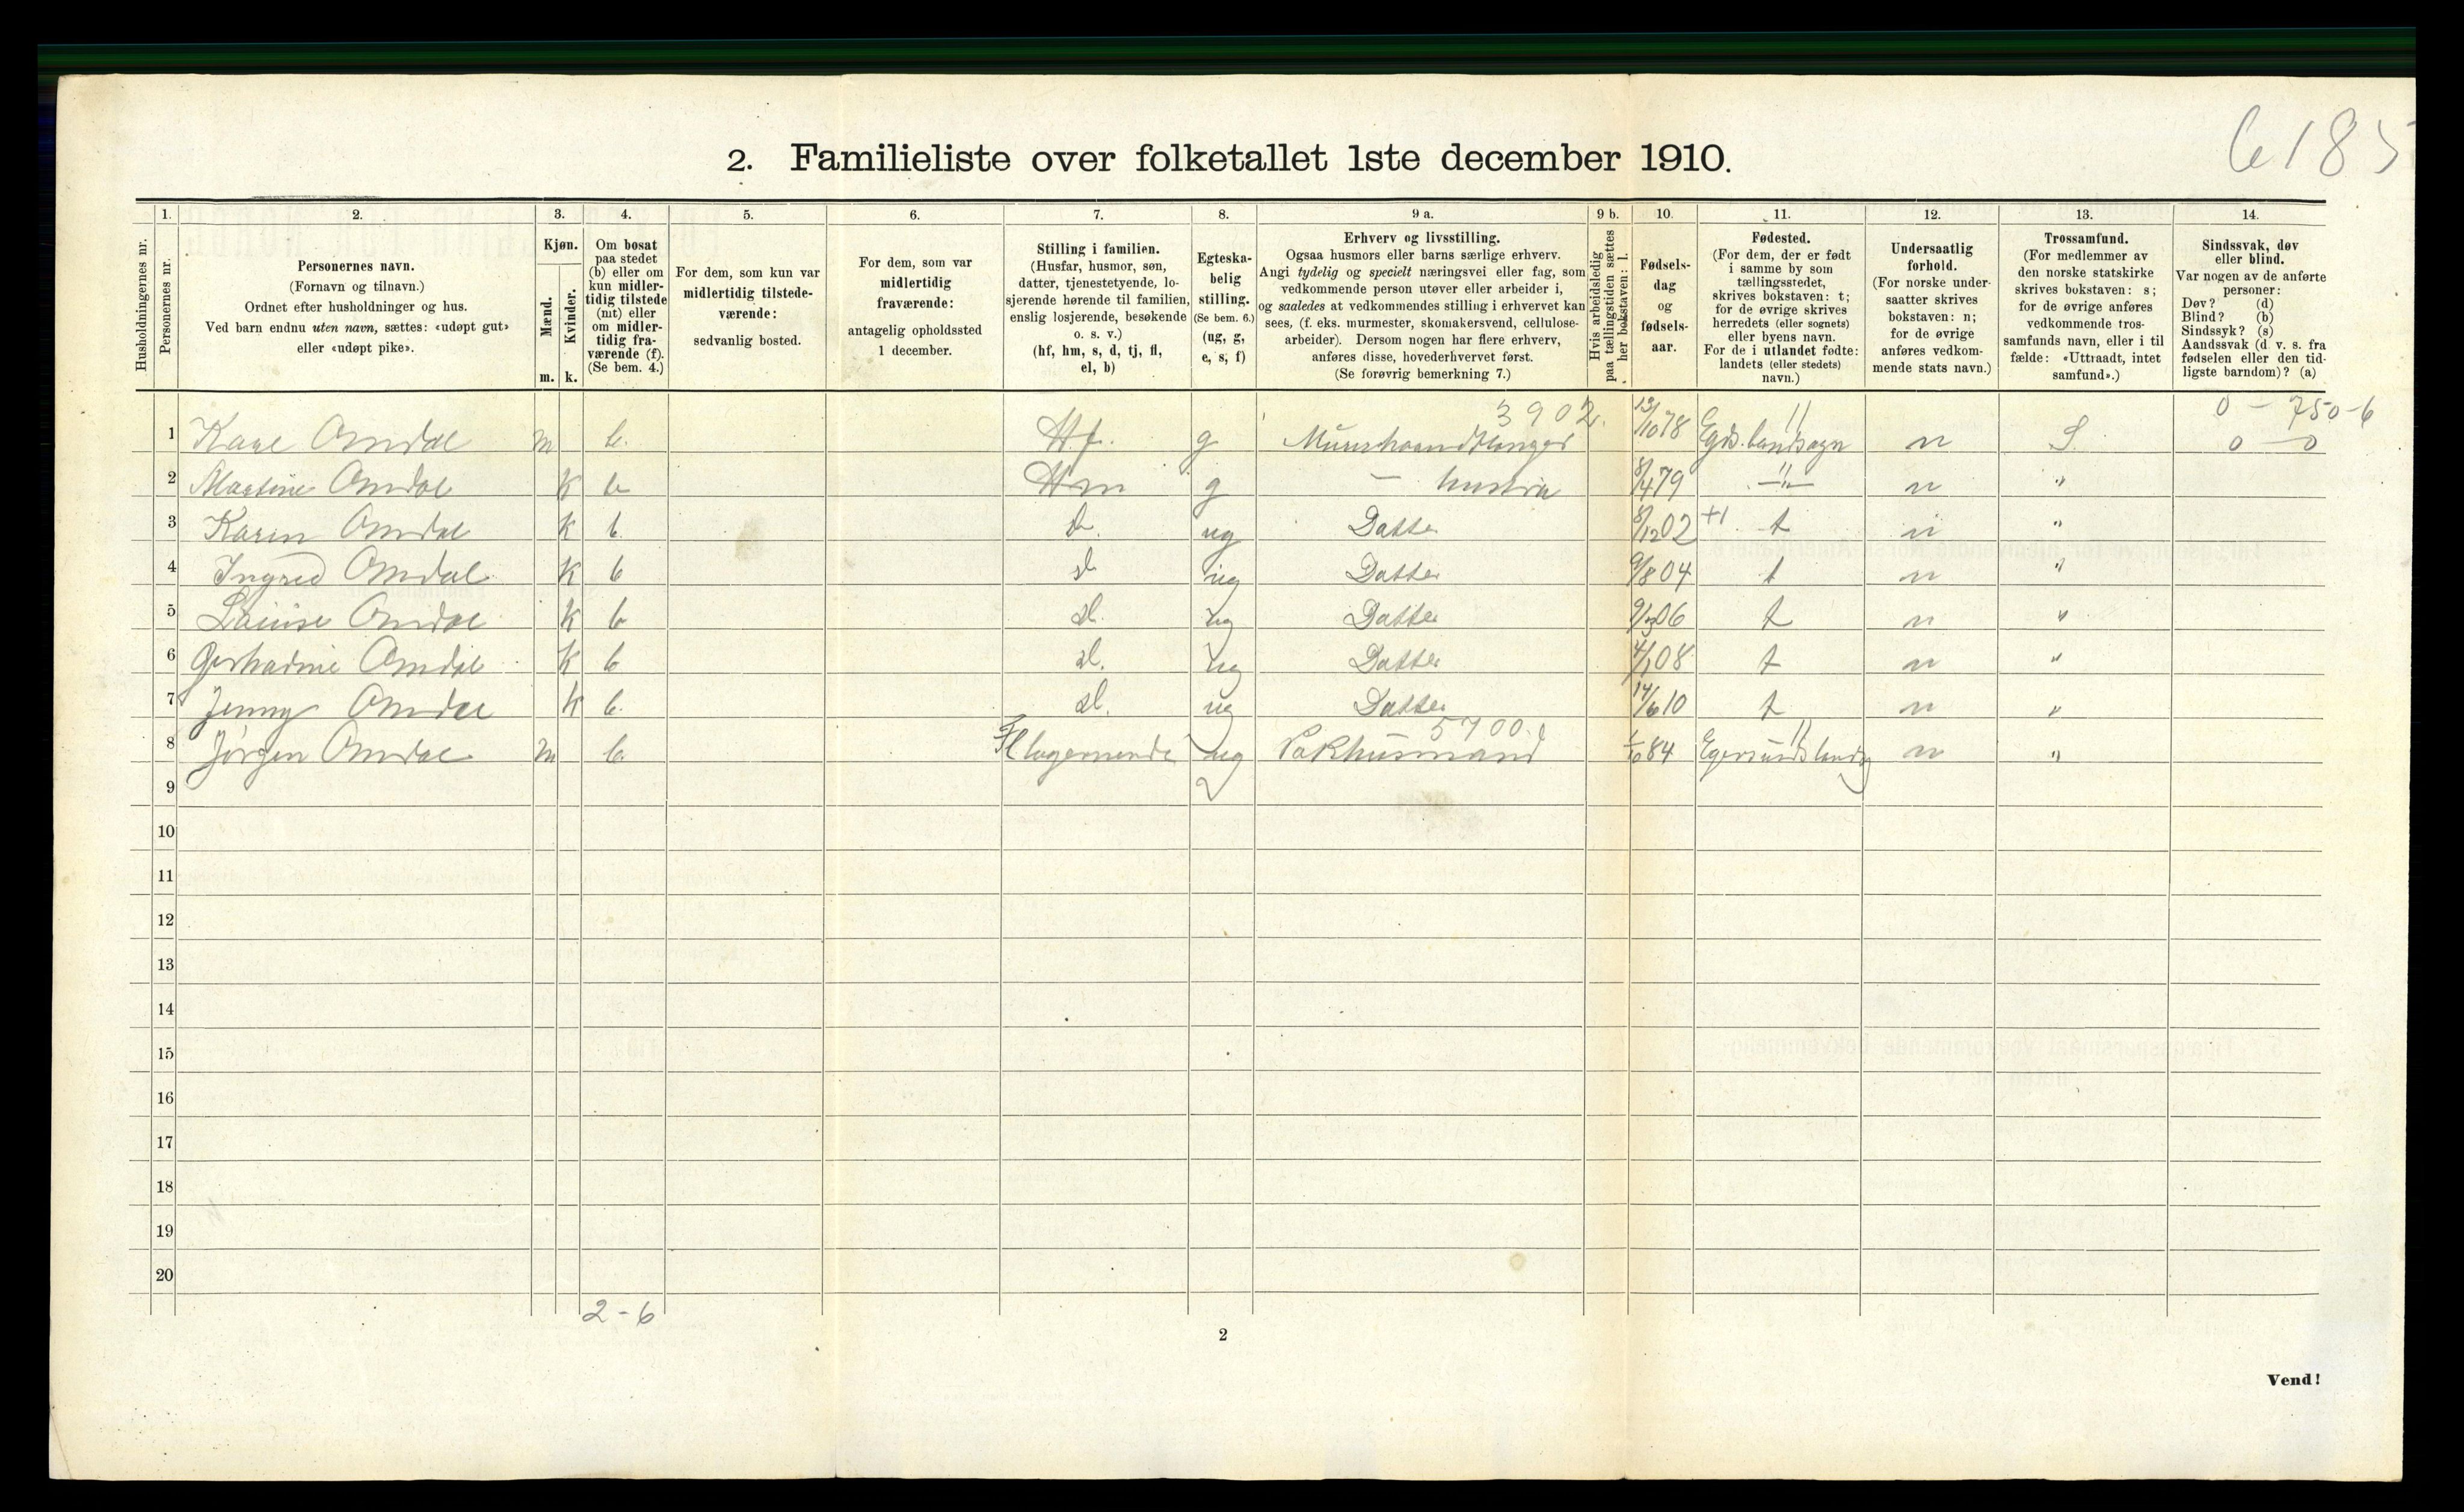 6185
2. Familieliste over folketallet 1ste december 1910.
1. 2. 3. 4. 5. 6. 7. 8. 9 a. 9 b. 10. 11. 12. 13. 14.
Husholdningernes nr.
Personernes nr.
Personernes navn.
(Fornavn og tilnavn.)
Ordnet efter husholdninger og hus.
Ved barn endnu uten navn, sættes: «udøpt gut»
eller «udøpt pike».
Kjøn.
Mænd.
Kvinder.
m. k.
Om bosat
paa stedet
(b) eller om
kun midler-
tidig tilstede
(mt) eller
om midler-
tidig fra-
værende (f).
(Se bem. 4.)
For dem, som kun var
midlertidig tilstede-
værende:
sedvanlig bosted.
For dem, som var
midlertidig
fraværende:
antagelig opholdssted
1 december.
Stilling i familien.
(Husfar, husmor, søn,
datter, tjenestetyende, lo-
sjerende hørende til familien,
enslig losjerende, besøkende
o. s. v.)
(hf, hm, s, d, tj, fl,
el, b)
Egteska-
belig
stilling.
(Se bem. 6.)
(ug, g,
e, s, f)
Erhverv og livsstilling.
Ogsaa husmors eller barns særlige erhverv.
Angi tydelig og specielt næringsvei eller fag, som
vedkommende person utøver eller arbeider i,
og saaledes at vedkommendes stilling i erhvervet kan
sees, (f. eks. murmester, skomakersvend, cellulose-
arbeider). Dersom nogen har flere erhverv,
anføres disse, hovederhvervet først.
(Se forøvrig bemerkning 7.)
Hvis arbeidsledig
paa tællingstiden sættes
her bokstaven: l.
Fødsels-
dag
og
fødsels-
aar.
Fødested.
(For dem, der er født
i samme by som
tællingsstedet,
skrives bokstaven: t;
for de øvrige skrives
herredets (eller sognets)
eller byens navn.
For de i utlandet fødte:
landets (eller stedets)
navn.)
Undersaatlig
forhold.
(For norske under-
saatter skrives
bokstaven: n;
for de øvrige
anføres vedkom-
mende stats navn.)
Trossamfund.
(For medlemmer av
den norske statskirke
skrives bokstaven: s;
for de øvrige anføres
vedkommende tros-
samfunds navn, eller i til
fælde: «Uttraadt, intet
samfund».)
Sindssvak, døv
eller blind.
Var nogen av de anførte
personer:
Døv? (d)
Blind? (b)
Sindssyk? (s)
Aandssvak (d. v. s. fra
fødselen eller den tid-
ligste barndom)? (a)
3902. 11 0 - 750-6
1 Karl Omdal m b. Hf. g Murerhaandtlanger 13/10 78 Egds. landsogn n S. 0 - 0
2 Martine Omdal k b Hm g — hustru 8/4 79 —"— n "
3 Karen Omdal k b. d. ug Datter 8/12 02 +1 t n "
4 Ingred Omdal k b d ug Datter 9/8 04 t n "
5 Louise Omdal k b d. ug Datter 9/3 06 t n "
6 Gerhadine Omdal k b d. ug Datter 4/1 08 t n "
7 Jenny Omdal k b. d. ug Datter 14/6 10 t n "
5700. 11
8 Jørgen Omdal m b. Fl logerende ug Pakhusmand 84 Egersunds lands n "
9 2
10
11
12
13
14
15
16
17
18
19
20
2-6
2
Vend!